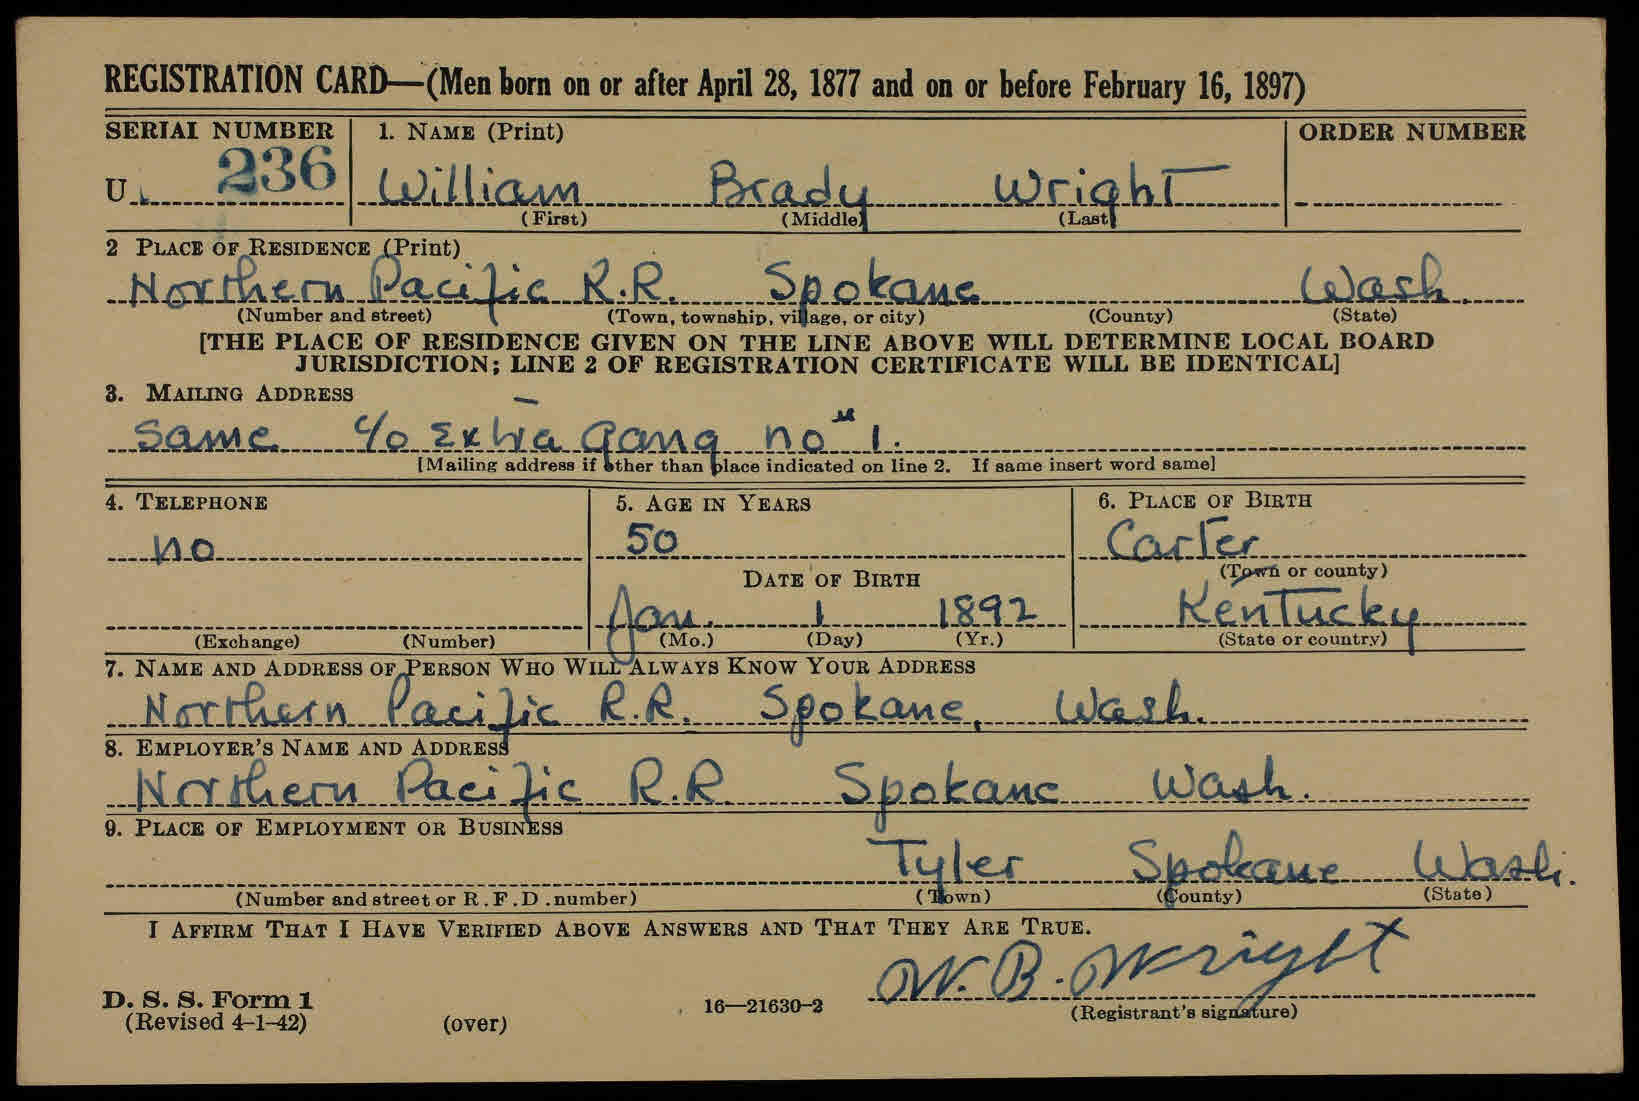 REGISTRATION CARD—(Men born on or after April 28, 1877 and on or before February 16, 1897)
SERIAL NUMBER 1. NAME (Print) ORDER NUMBER
U 236 William Brady Wright
(First) (Middle) (Last)
2 PLACE OF RESIDENCE (Print)
Northern Pacific R.R. Spokane Wash.
(Number and street) (Town, township, village, or city) (County) (State)
[THE PLACE OF RESIDENCE GIVEN ON THE LINE ABOVE WILL DETERMINE LOCAL BOARD
JURISDICTION; LINE 2 OF REGISTRATION CERTIFICATE WILL BE IDENTICAL]
3. MAILING ADDRESS
Same c/o Extra Gang no # 1.
[Mailing address if other than place indicated on line 2. If same insert word same]
4. TELEPHONE 5. AGE IN YEARS 6. PLACE OF BIRTH
no 50 Carter
DATE OF BIRTH (Town or county)
Jan. 1 1892 Kentucky
(Exchange) (Number) (Mo.) (Day) (Yr.) (State or country)
7. NAME AND ADDRESS OF PERSON WHO WILL ALWAYS KNOW YOUR ADDRESS
Northern Pacific R.R. Spokane, Wash.
8. EMPLOYER'S NAME AND ADDRESS
Northern Pacific R.R. Spokane Wash.
9. PLACE OF EMPLOYMENT OR BUSINESS
Tyler Spokane Wash.
(Number and street or R.F.D. number) (Town) (County) (State)
I AFFIRM THAT I HAVE VERIFIED ABOVE ANSWERS AND THAT THEY ARE TRUE.
W. B. Wright
D. S. S. Form 1 16—21630-2 (Registrant's signature)
(Revised 4-1-42) (over)